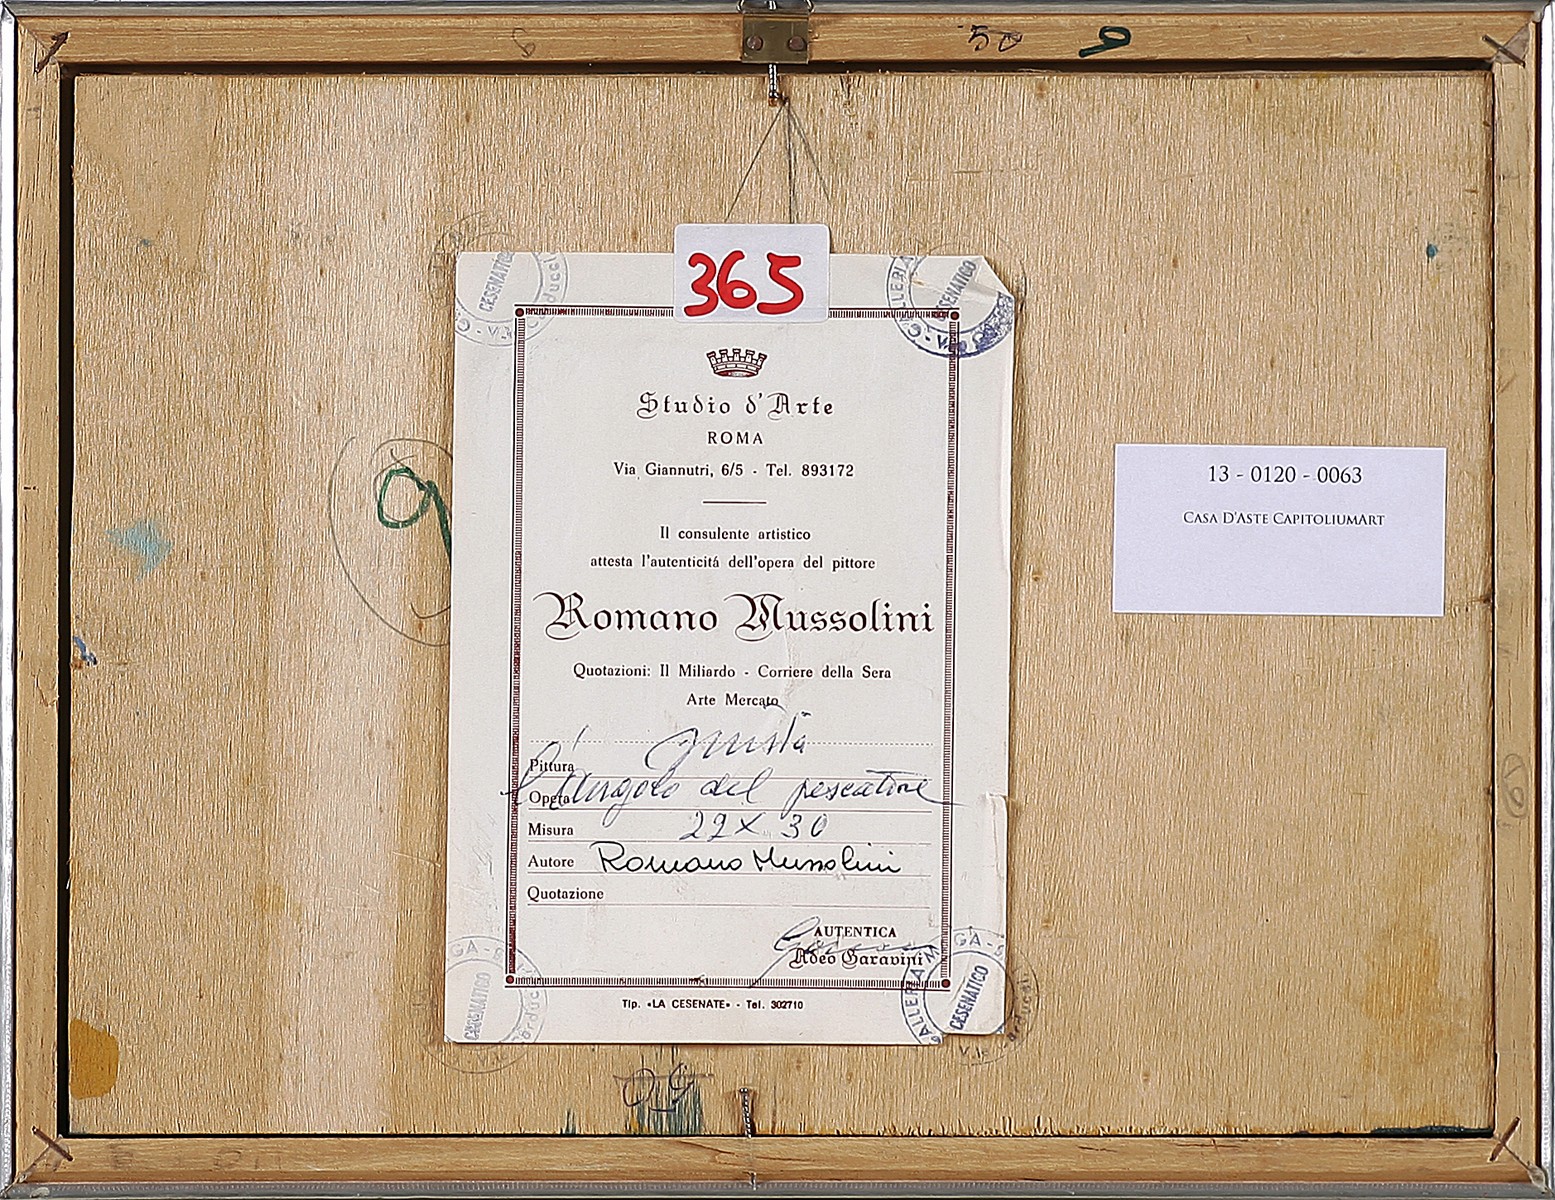 6
50
9
365
CESENATICO
CESENATICO
Studio d'Arte
ROMA
Via Giannutri, 6/5 - Tel. 893172
Il consulente artistico
attesta l'autenticitá dell'opera del pittore
Romano Mussolini
Quotazioni: Il Miliardo - Corriere della Sera
Arte Mercato
Pittura
Opera L'Angolo del pescatore
Misura 22 x 30
Autore Romano Mussolini
Quotazione
AUTENTICA
Adeo Garavini
CESENATICO
CESENATICO
Tip. «LA CESENATE» - Tel. 302710
9
13 - 0120 - 0063
CASA D'ASTE CAPITOLIUMART